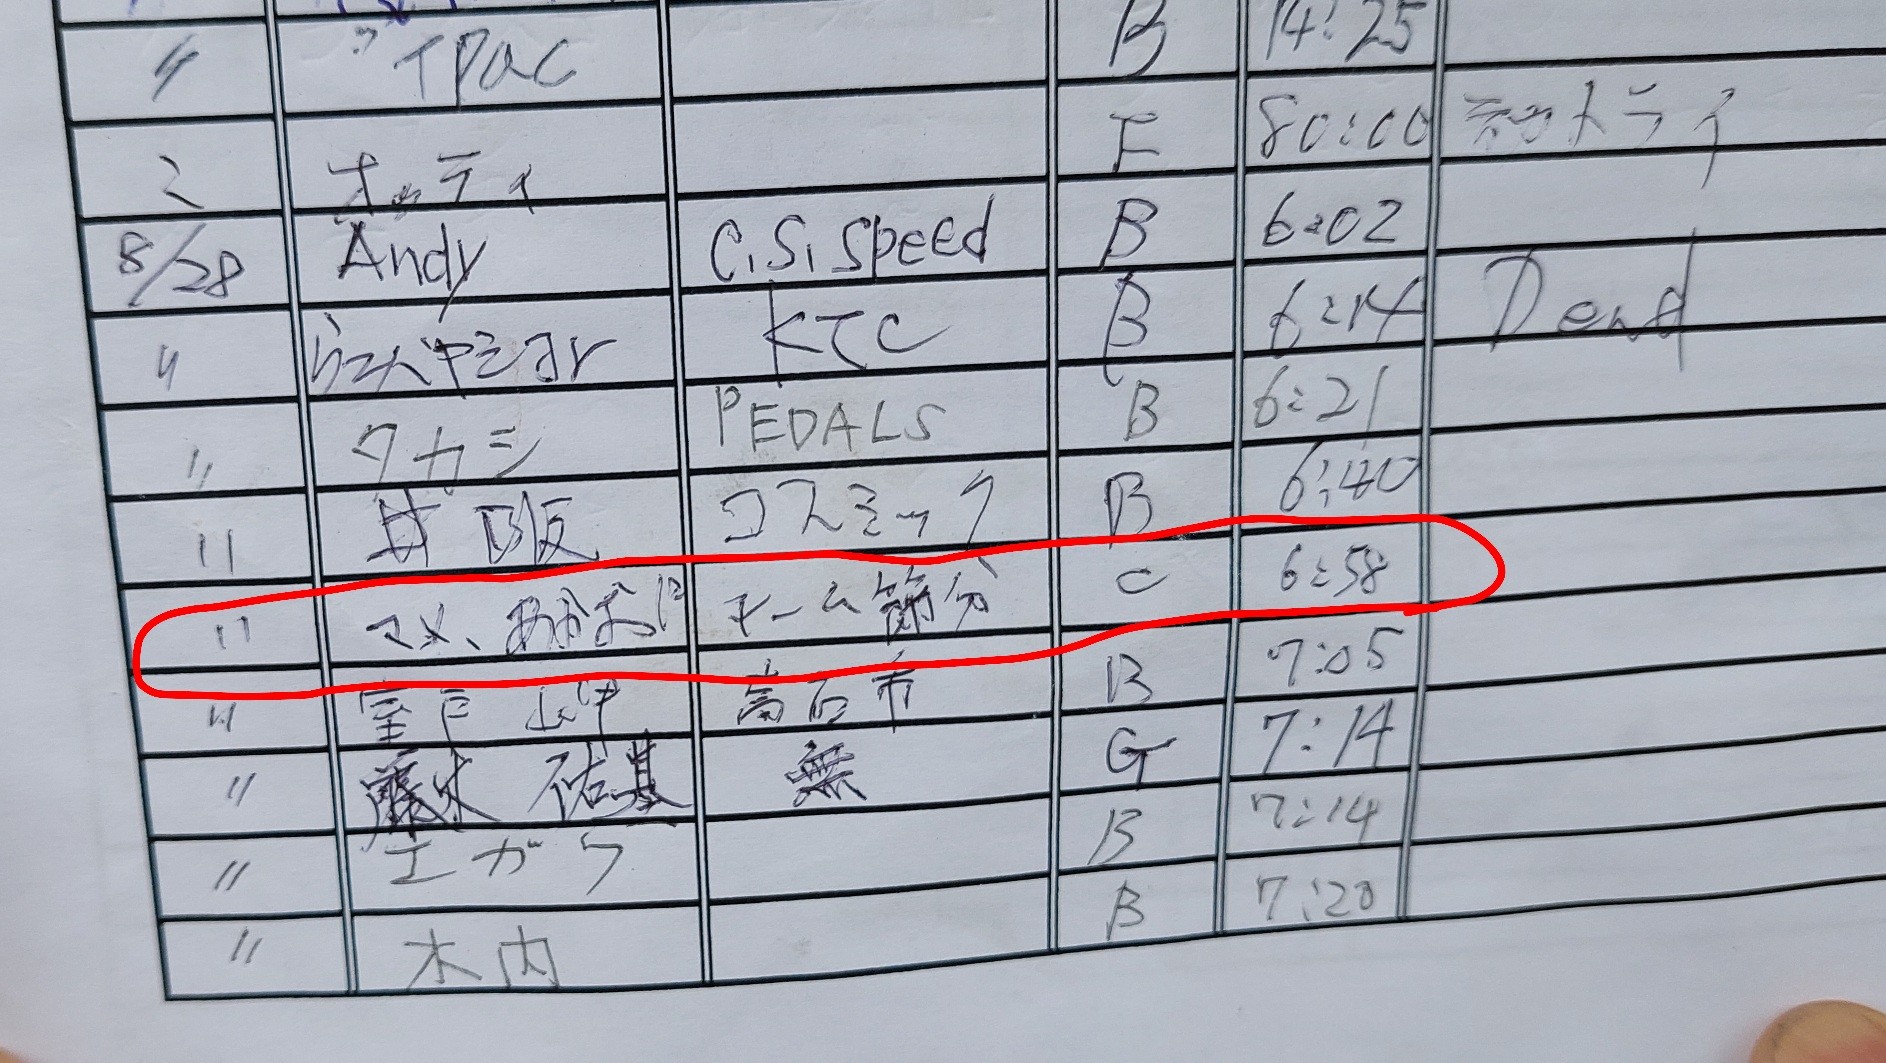 〃 TPAC B 14:25
2 オッティ F 80:00 ネットライ
8/28 Andy C.S.Speed B 6:02
〃 KTC B 6:14 Dend
〃 タカシ PEDALS B 6:21
〃 井阪 コスミック B 6:40
〃 マメ、あかおに チーム節分 C 6:58
〃 室戸岬 高石市 B 7:05
〃 藤木 祐基 無 G 7:14
〃 エガワ B 7:14
〃 木内 B 7:20